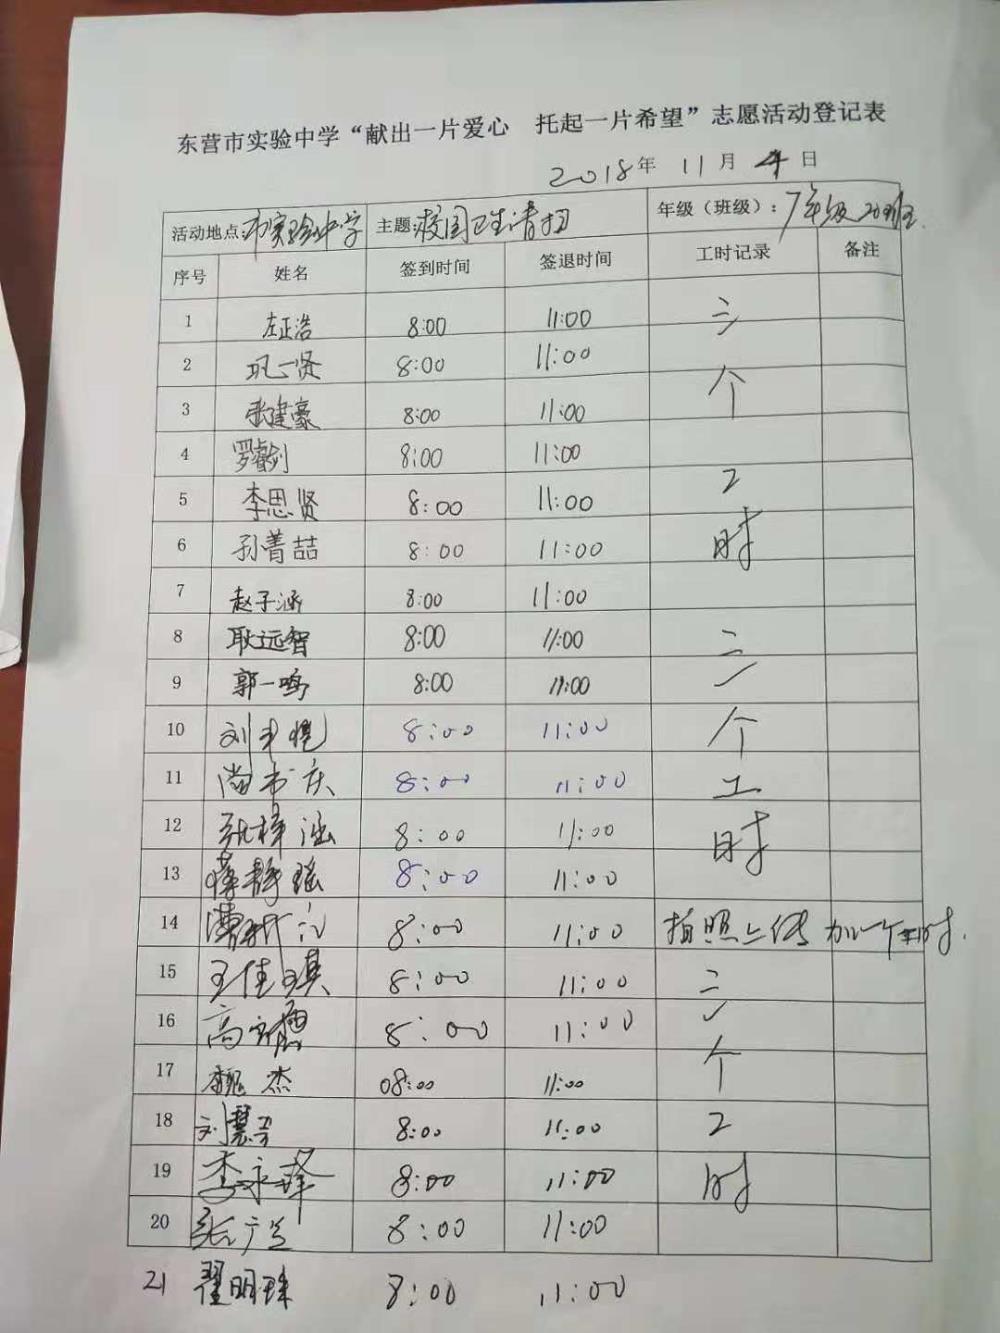 东营市实验中学“献出一片爱心 托起一片希望”志愿活动登记表
2018年 11月 4日
活动地点:市实验中学 主题:校园卫生清扫 年级（班级）：7年级20班
序号 姓名 签到时间 签退时间 工时记录 备注
1 左正浩 8:00 11:00 三
2 巩一贤 8:00 11:00 个
3 张建豪 8:00 11:00
4 罗睿剑 8:00 11:00
5 李思贤 8:00 11:00 工
6 孙菁喆 8:00 11:00 时
7 赵子涵 8:00 11:00
8 耿远智 8:00 11:00 三
9 郭一鸣 8:00 11:00
10 刘 8:00 11:00 个
11 尚书庆 8:00 11:00 工
12 张梓涵 8:00 11:00 时
13 静瑶 8:00 11:00
14 8:00 11:00 拍照上传 加一个时
15 王佳琪 8:00 11:00 三
16 高 8:00 11:00
17 杰 08:00 11:00 个
18 刘慧芳 8:00 11:00 工
19 李永峰 8:00 11:00 时
20 张广兰 8:00 11:00
21 翟明 8:00 11:00